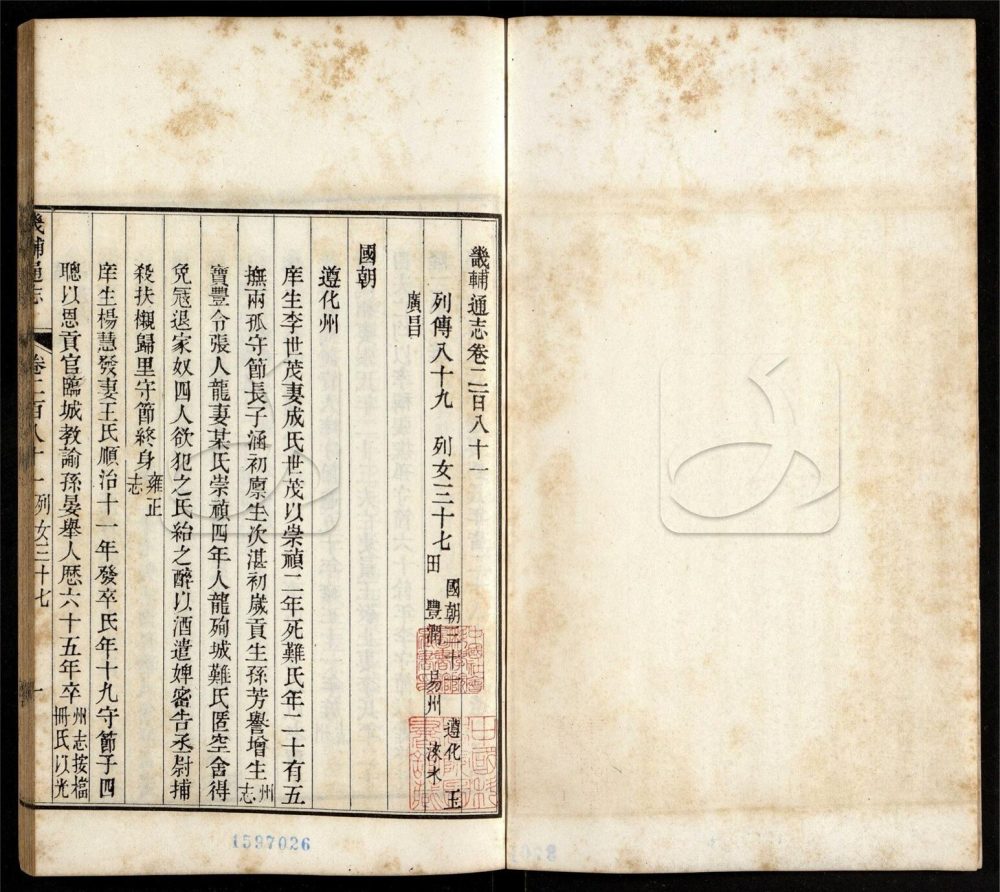 畿輔通志卷二百八十一
列傳八十九　列女三十七　國朝三十一　遵化　玉
田　豐潤　易州　淶水
廣昌
國朝
遵化州
庠生李世茂妻成氏世茂以崇禎二年死難氏年二十有五
撫兩孤守節長子涵初廪生次湛初歲貢生孫芳譽增生州
志
寶豐令張人龍妻某氏崇禎四年人龍殉城難氏匿空舍得
免冠退家奴四人欲犯之氏紿之醉以酒遣婢密告丞尉捕
殺扶櫬歸里守節終身雍正
志
庠生楊慧發妻王氏順治十一年發卒氏年十九守節子四
聰以恩貢官臨城教諭孫晏舉人歴六十五年卒州志按檔
冊氏以光
畿輔通志　卷二百八十一　列女三十七　一
1597026